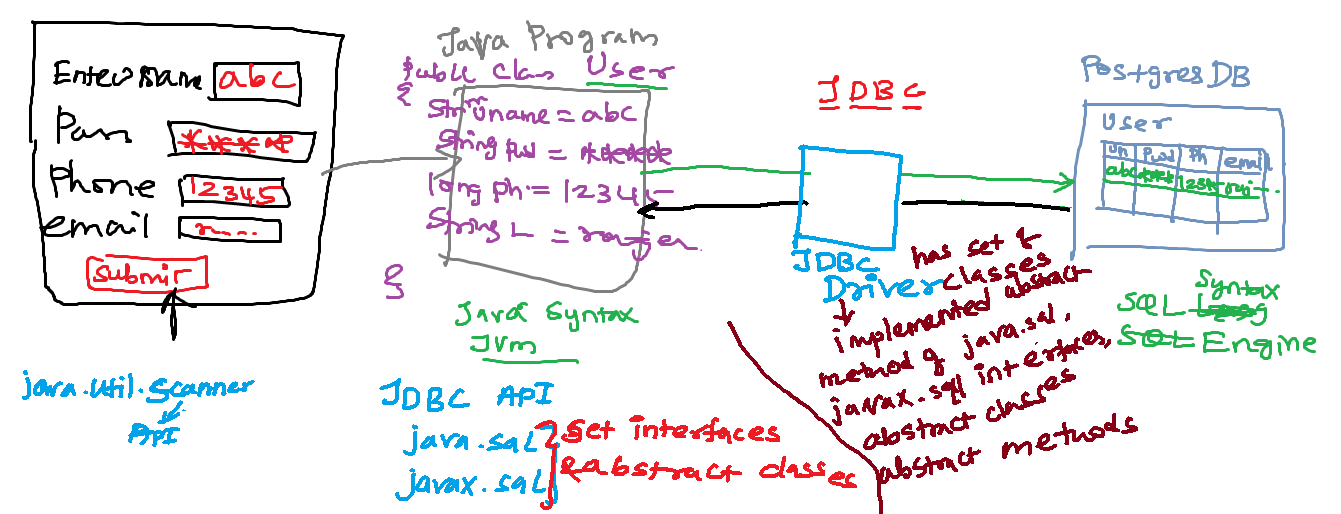 Enter Name abc
Pass *****
Phone 12345
email n....
Submit
java.util.Scanner
API
Java Program
Public Class User
{
String uname = abc
String pwd = ******
long ph = 12345
String L =
}
Java Syntax
JVM
JDBC API
java.sql
javax.sql
Set interfaces
& abstract classes
JDBC
JDBC
Driver
has set of
classes
implemented abstract
method of java.sql,
javax.sql interfaces,
abstract classes
abstract methods
Postgres DB
User
un Pwd Ph email
abc **** 1234
SQL Syntax
SQL Engine